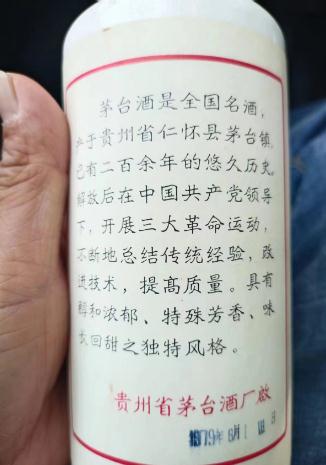 茅台酒是全国名酒，
产于贵州省仁怀县茅台镇，
已有二百余年的悠久历史。
解放后在中国共产党领导
下，开展三大革命运动，
不断地总结传统经验，改
进技术，提高质量。具有
醇和浓郁、特殊芳香、味
长回甜之独特风格。
贵州省茅台酒厂啟
1979年6月